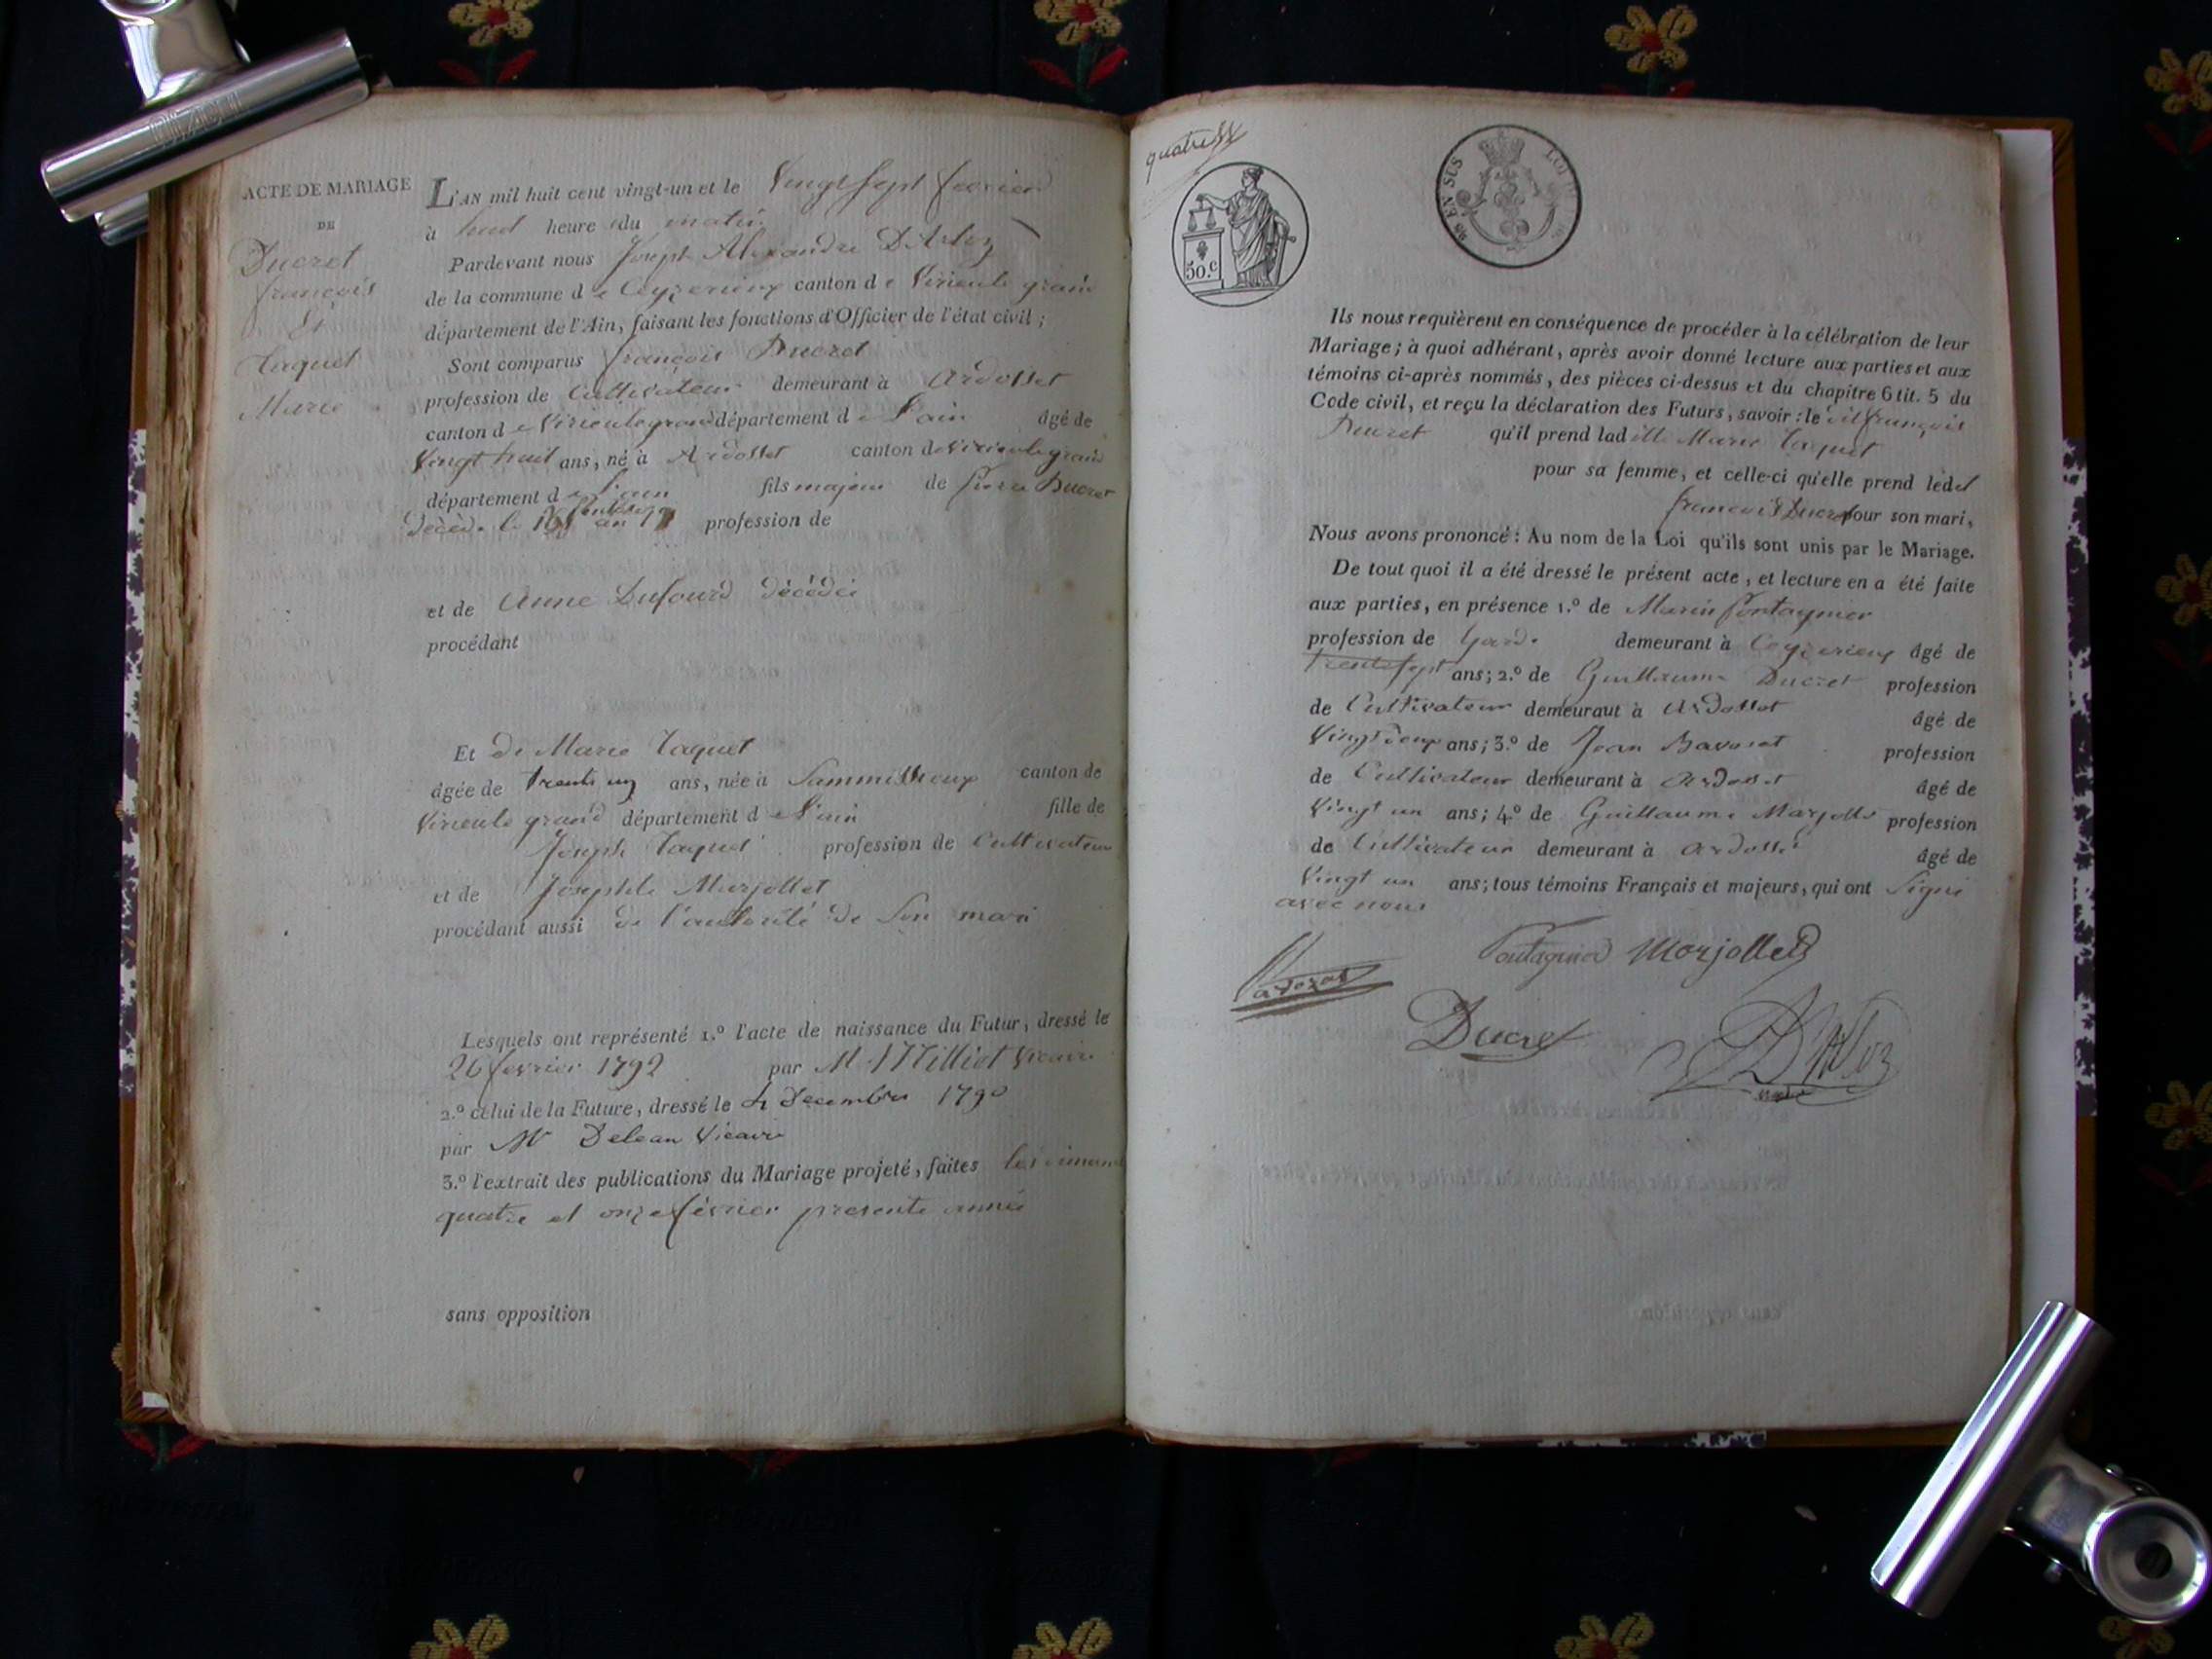 ACTE DE MARIAGE
DE
Ducret
françois
Et
Taquet
Marie
L'AN mil huit cent vingt-un et le Vingt sept fevrier
à huit heure du matin
Pardevant nous Joseph Alexandre D'Arloz
de la commune de Ceyzerieux canton de Virieule grand
département de l'Ain, faisant les fonctions d'Officier de l'état civil ;
Sont comparus françois Ducret
profession de Cultivateur demeurant à Ardosset
canton de Virieulegrand département de l'ain âgé de
Vingt huit ans, né à Ardosset canton de Virieulegrand
département de l'ain fils majeur de Pierre Ducret
décédé le 16 an 13 profession de
et de Anne Dufourd décédée
procédant
Et de Marie Taquet
âgée de trente un ans, née à Sammissieux canton de
Virieule grand département de l'ain fille de
Joseph Taquet profession de Cultivateur
et de Josephte Marjollet
procédant aussi de l'autorité de Son mari
Lesquels ont représenté 1.º l'acte de naissance du Futur, dressé le
26 fevrier 1792 par Mr Milliet Vicaire
2.º celui de la Future, dressé le 4 Decembre 1790
par Mr Delean Vicaire
3.º l'extrait des publications du Mariage projeté, faites les dimanc
quatre et onze février presente année
sans opposition
quatre
50.c
EN SUS
LOI
Ils nous requièrent en conséquence de procéder à la célébration de leur
Mariage ; à quoi adhérant, après avoir donné lecture aux parties et aux
témoins ci-après nommés, des pièces ci-dessus et du chapitre 6 tit. 5 du
Code civil, et reçu la déclaration des Futurs, savoir : le dit françois
Ducret qu'il prend ladite Marie Taquet
pour sa femme, et celle-ci qu'elle prend ledit
francois Ducret pour son mari,
Nous avons prononcé : Au nom de la Loi qu'ils sont unis par le Mariage.
De tout quoi il a été dressé le présent acte, et lecture en a été faite
aux parties, en présence 1.º de Marin fontagnier
profession de Garde demeurant à Ceyzerieux âgé de
trente sept ans ; 2.º de Guillaume Ducret profession
de Cultivateur demeurant à Ardosset âgé de
Vingt deux ans ; 3.º de Jean Bavoset profession
de Cultivateur demeurant à Ardosset âgé de
Vingt un ans ; 4.º de Guillaume Marjollet profession
de Cultivateur demeurant à ardosset âgé de
Vingt un ans ; tous témoins Français et majeurs, qui ont Signé
avec nous
fontagnier Morjollet
Bavozat
Ducret D'Arloz